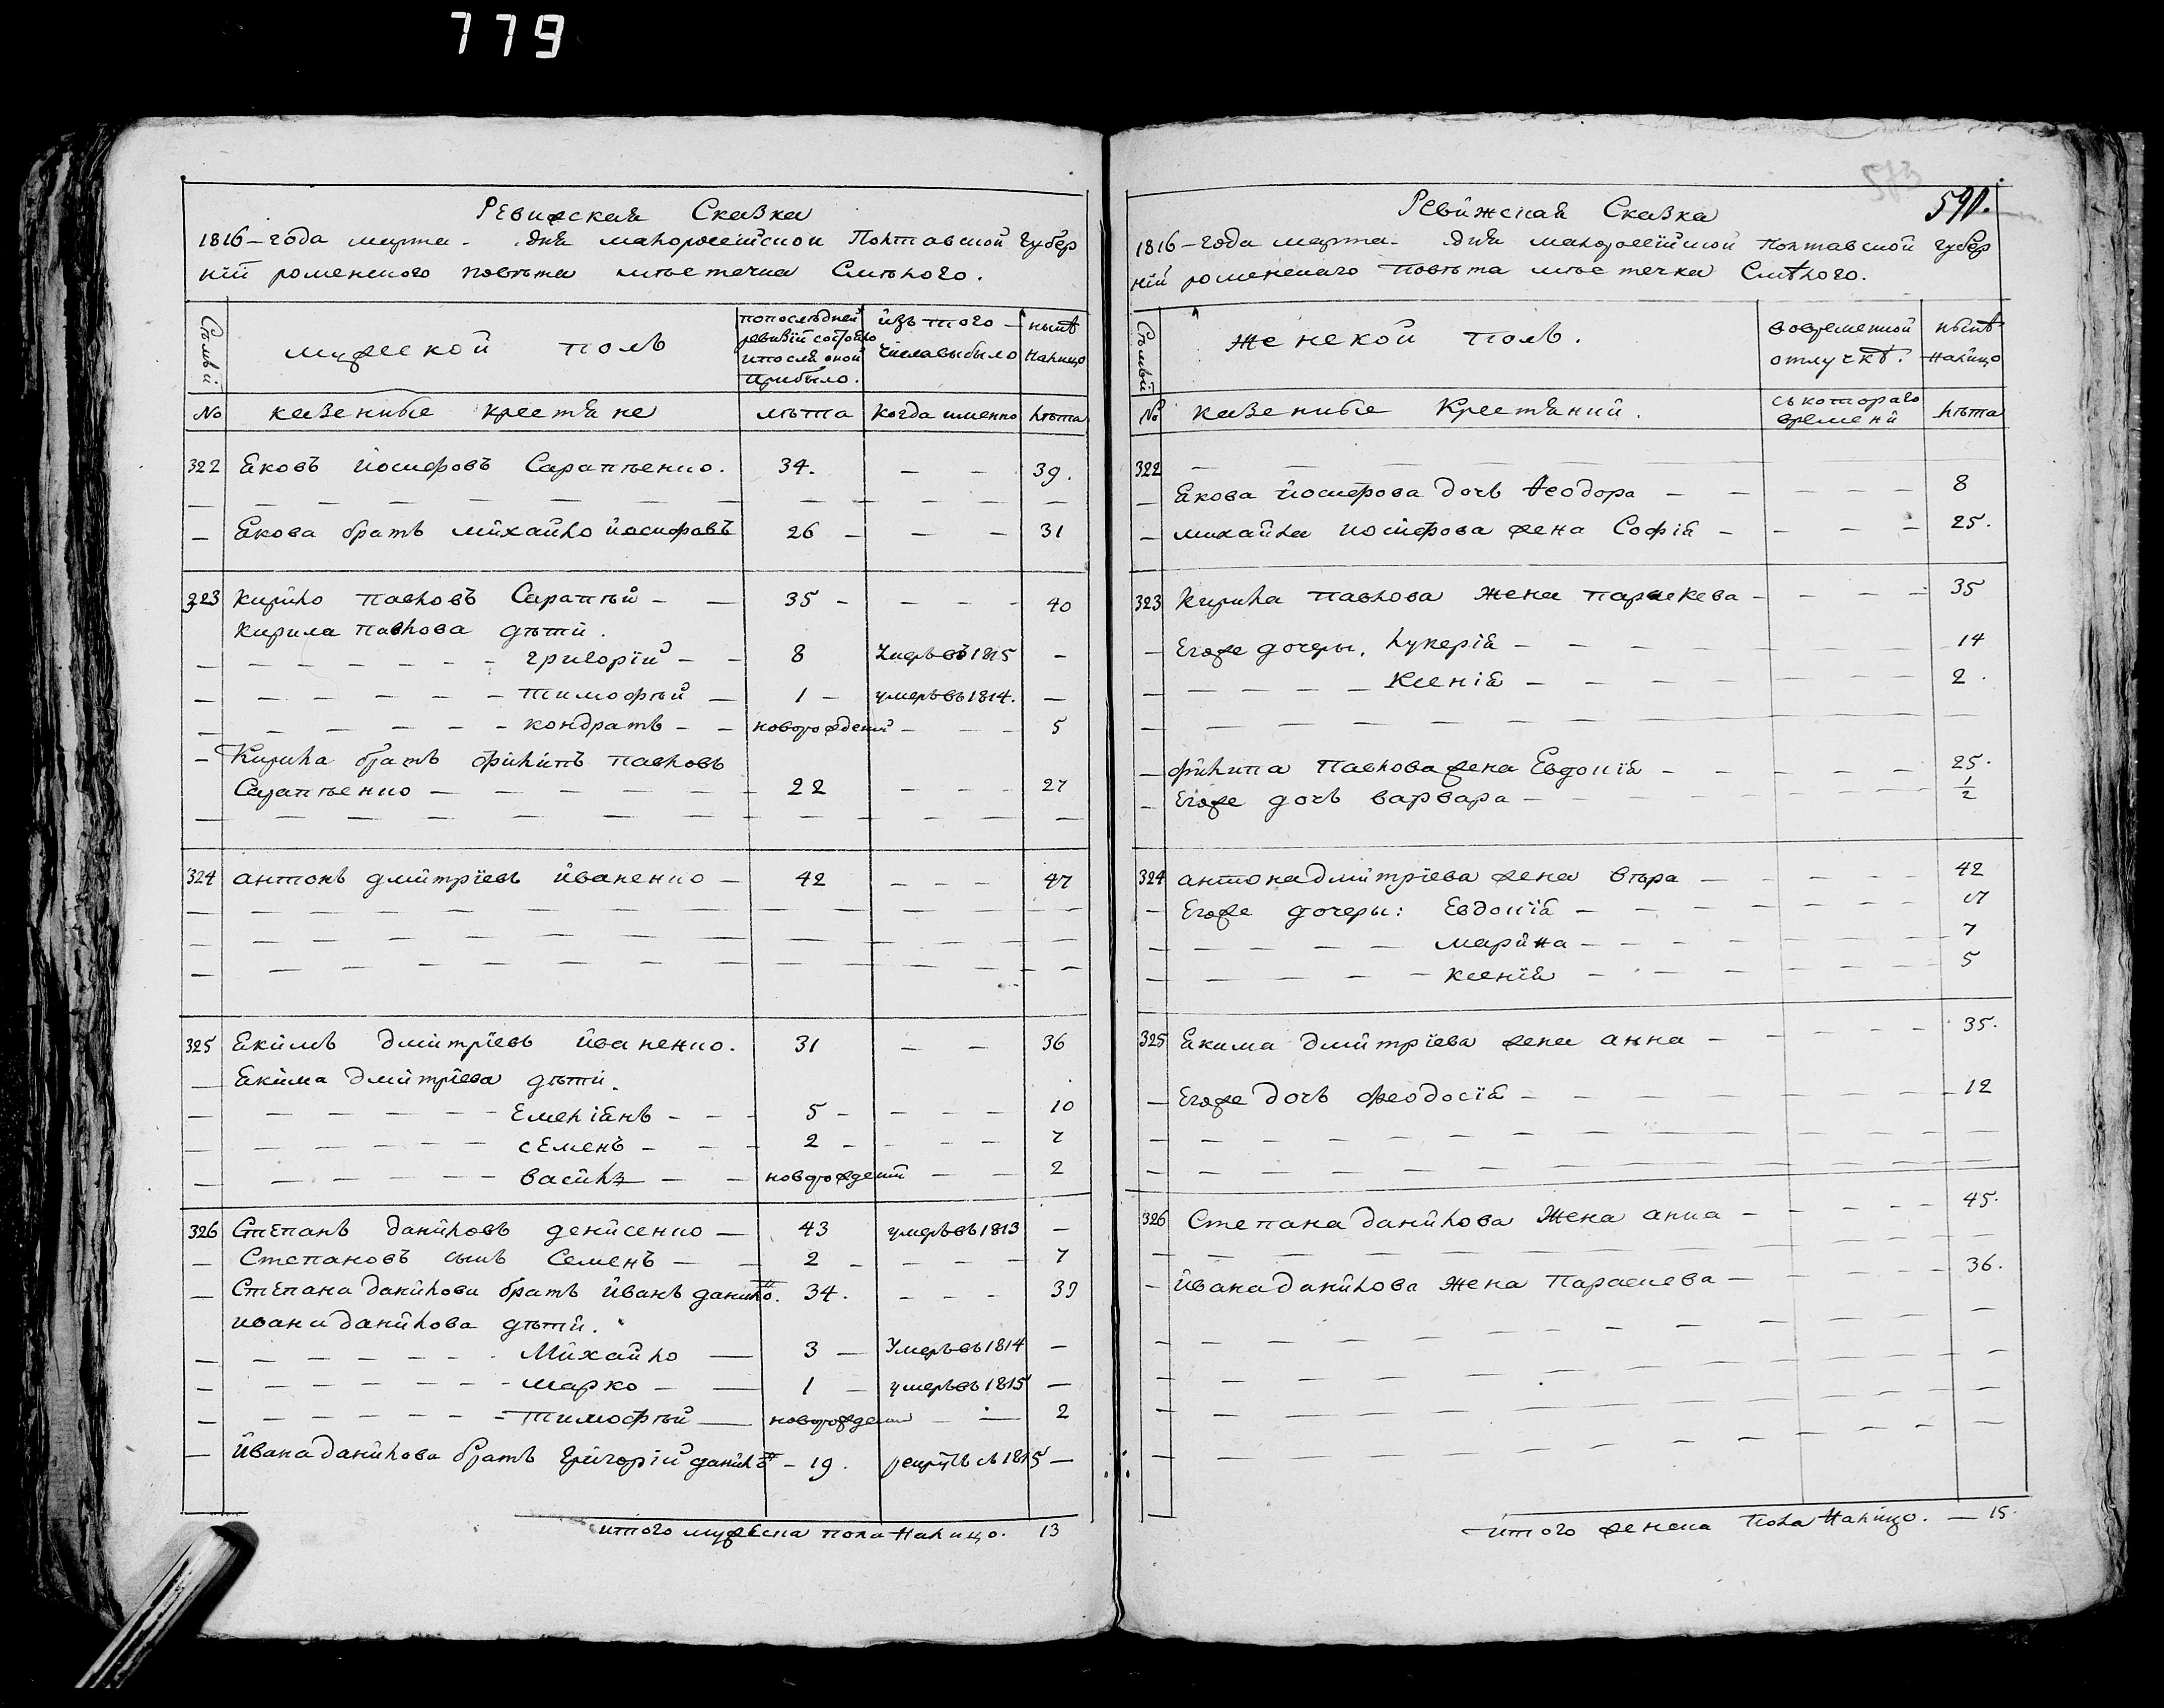 779
Ревизская Сказка
1816 – года марта – дня малороссійской Полтавской губер
ніи роменского повѣта мѣстечка Смѣлого.
Семьи
мужеской полъ
по последней ревизіи состояло и после оной прибыло.
изъ того числа выбыло
нынѣ налицо
№ казенные крестяне лѣта когда именно лѣта
322 Яковъ Йосифовъ Сарапѣенко. 34. — — 39.
— Якова братъ михайло йосифовъ 26 — — — 31
323 Кирило павловъ Сарапѣй — — 35 — — — — 40
Кирила павлова дѣти.
— григорій — — 8 умеръ въ 1815 —
— тимофѣй — 1 — умеръ въ 1814. —
— кондратъ — — новорожденій — — — 5
— Кирила братъ филипъ павловъ
Сарапѣенко — 22 — — — 27
324 антонъ дмитріевъ йваненко — 42 — — — 47
325 Якимъ дмитріевъ йваненко. 31 — — 36
— Якима дмитріева дѣти.
— Емеліанъ — — — 5 — — — — 10
— сЕменъ — — — 2 — — — — 7
— василъ — — новорожденій — — 2
326 Степанъ данйловъ денисенко — 43 умеръ въ 1813 —
— Степановъ сынъ Семенъ — — 2 — — — — 7
— Степана данйлова братъ йванъ данило. 34. — — — 39
ивана данйлова дѣти.
— Михайло — 3 — Умеръ въ 1814 —
— марко — — 1 — умеръ въ 1815 —
— тимофѣй — новорожденій — — 2
— йвана данйлова братъ григорій данил — 19. рекрутъ съ 1815 —
итого мужеска пола налицо. 13
573
590.
Ревижская Сказка
1816 – года марта – дня малороссійской полтавской губер
ніи роменскаго повѣта мѣстечка Смѣлого.
Семьи
женской полъ.
во временной отлучкѣ.
нынѣ налицо
№ казенные Крестяний. съ котораго времени лѣта
322
— Якова йосифова дочь Ѳеодора — — — — — 8
— михайла иосифова жена Софія — — — — 25.
323 Кирила павлова жена параскева — — — — 35
— Егоже дочеры, лукерія — 14
— Ксенія — 2.
— филипа павлова жена Евдокія — 25.
— Егоже дочь варвара — 1/2
324 антона дмитріева жена вѣра — 42
— Егоже дочеры: Евдокія — 17
— марина — 7
— ксенія — 5
325 Якима дмитріева жена анна — 35.
— Егоже дочь феодосія — 12
326 Степана данйлова жена анна — 45.
— йвана данйлова жена параскева — 36.
итого женска пола налицо. — 15.